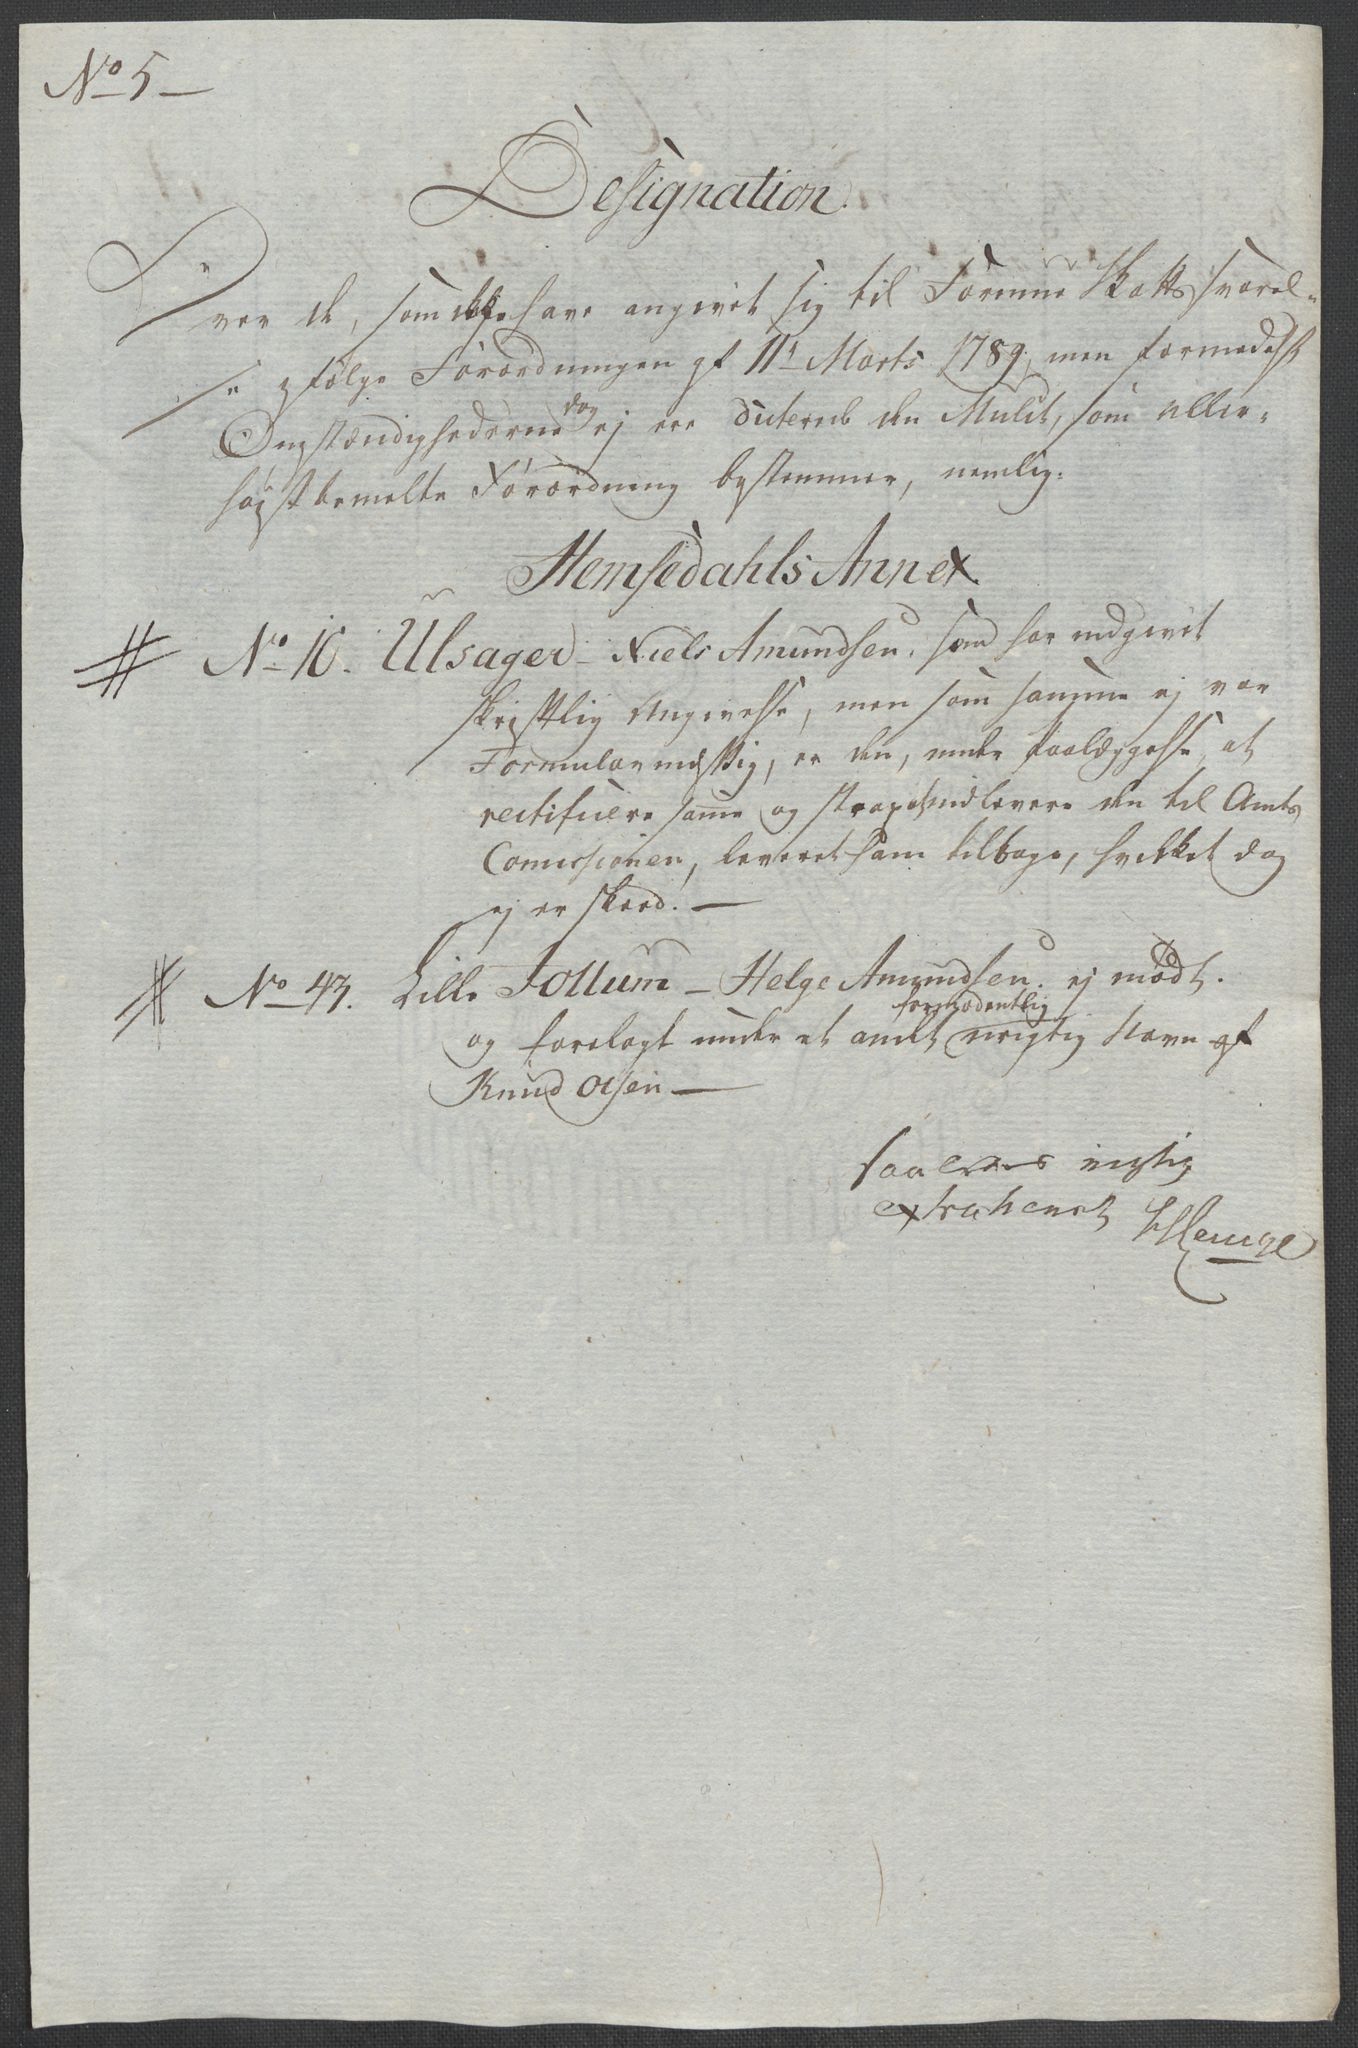 No 5
Designation
Over de, som ikke have angivet sig til Formue Skatts Svarel-
se ifølge Forordningen af 11t Marts 1789, men formedelst
Omstændighederne dog ej ere dicteret den Mulct, som aller-
høystbemelte Forordning bestemmer, nemlig:
Hemsedahls Annex
No 10. Ulsager - Niels Amundsen, som har indgivet
skriftlig Angivelse, men som samme ej var
Formularmæssig, er den, under Paalæggelse, at
rectificere samme og strax at indlevere den til Amts
Comissionen, leveret ham tilbage, hvilket dog
ej er skeed. —
No 43. Lille Tollum - Helge Amundsen. ej mødt.
og forelagt under et andet formodentlig urigtig Navn af
Knud Olsen —
saaledes rigtig
extraheret